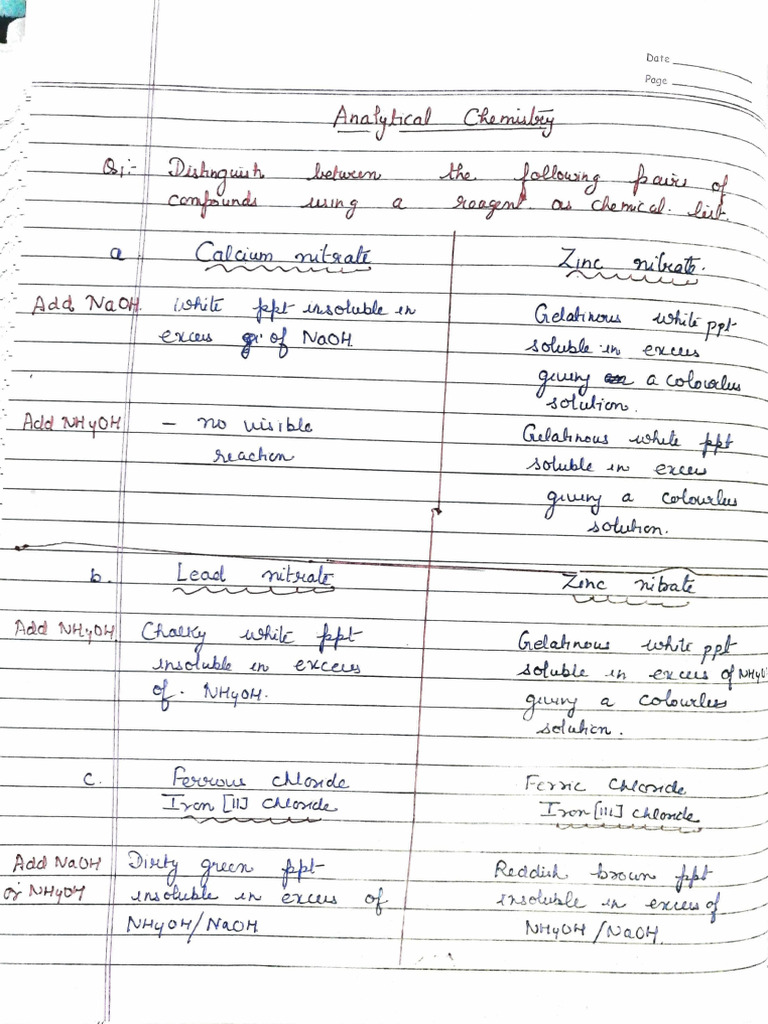 Date
Page
Analytical Chemistry
Q1:- Distinguish between the following pairs of
compounds using a reagent as chemical test.
a. Calcium nitrate Zinc nitrate.
Add NaOH. White ppt insoluble in
excess of NaOH
Gelatinous white ppt
soluble in excess
giving a colourless
solution.
Add NH4OH - no visible
reaction
Gelatinous white ppt
soluble in excess
giving a colourless
solution.
b. Lead nitrate Zinc nitrate
Add NH4OH. Chalky white ppt
insoluble in excess
of. NH4OH.
Gelatinous white ppt
soluble in excess of NH4O
giving a colourless
solution.
c. Ferrous chloride
Iron [II] chloride
Ferric chloride
Iron [III] chloride
Add NaOH
or NH4OH
Dirty green ppt
insoluble in excess of
NH4OH/NaOH
Reddish brown ppt
insoluble in excess of
NH4OH/NaOH.